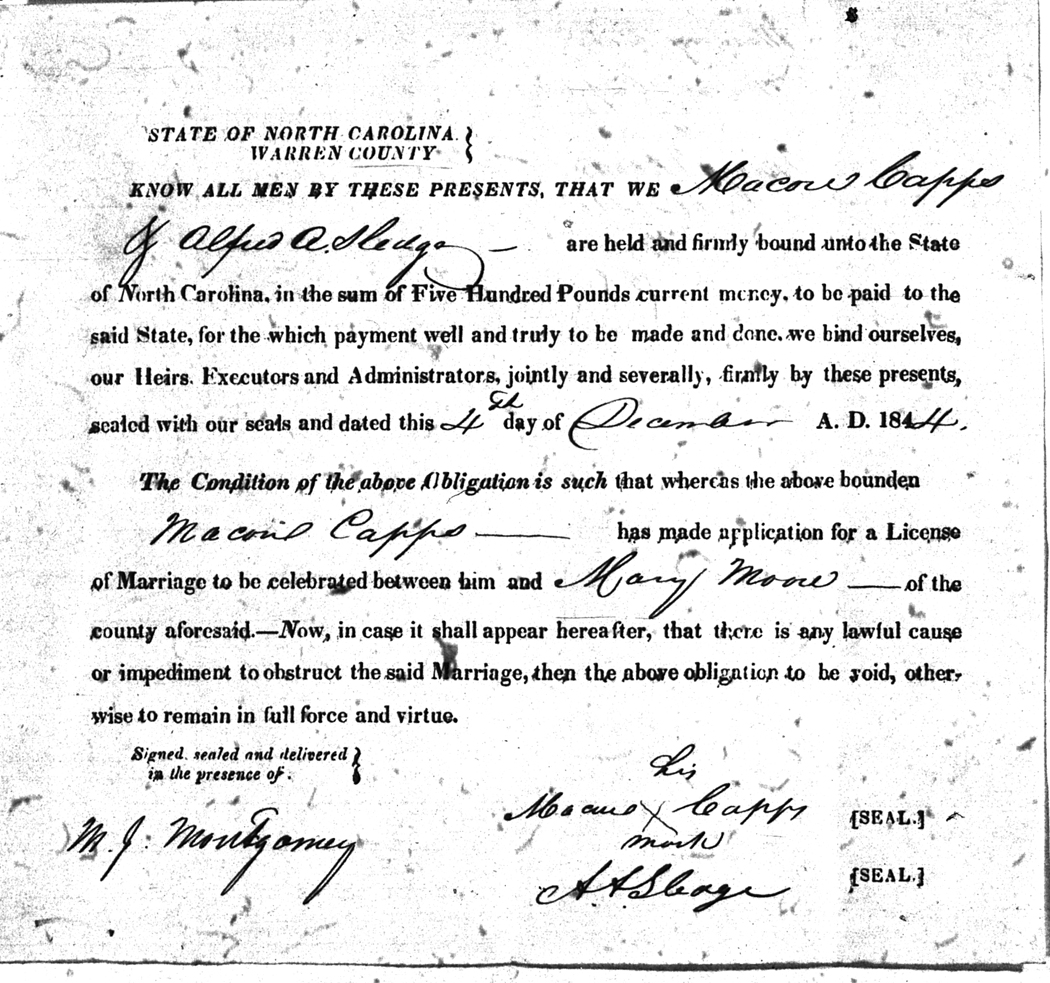 STATE OF NORTH CAROLINA.
WARREN COUNTY
KNOW ALL MEN BY THESE PRESENTS, THAT WE Macon Capps
& Alfred A. Sledge — are held and firmly bound unto the State
of North Carolina, in the sum of Five Hundred Pounds current money, to be paid to the
said State, for the which payment well and truly to be made and done, we bind ourselves,
our Heirs. Executors and Administrators, jointly and severally, firmly by these presents,
sealed with our seals and dated this 4th day of December A. D. 1844.
The Condition of the above Obligation is such that whereas the above bounden
Macon Capps — has made application for a License
of Marriage to be celebrated between him and Mary Moore — of the
county aforesaid.—Now, in case it shall appear hereafter, that there is any lawful cause
or impediment to obstruct the said Marriage, then the above obligation to be void, other-
wise to remain in full force and virtue.
Signed, sealed and delivered
in the presence of.
his
Macon X Capps [SEAL.]
mark
M. J. Montgomery
A. A. Sledge [SEAL.]